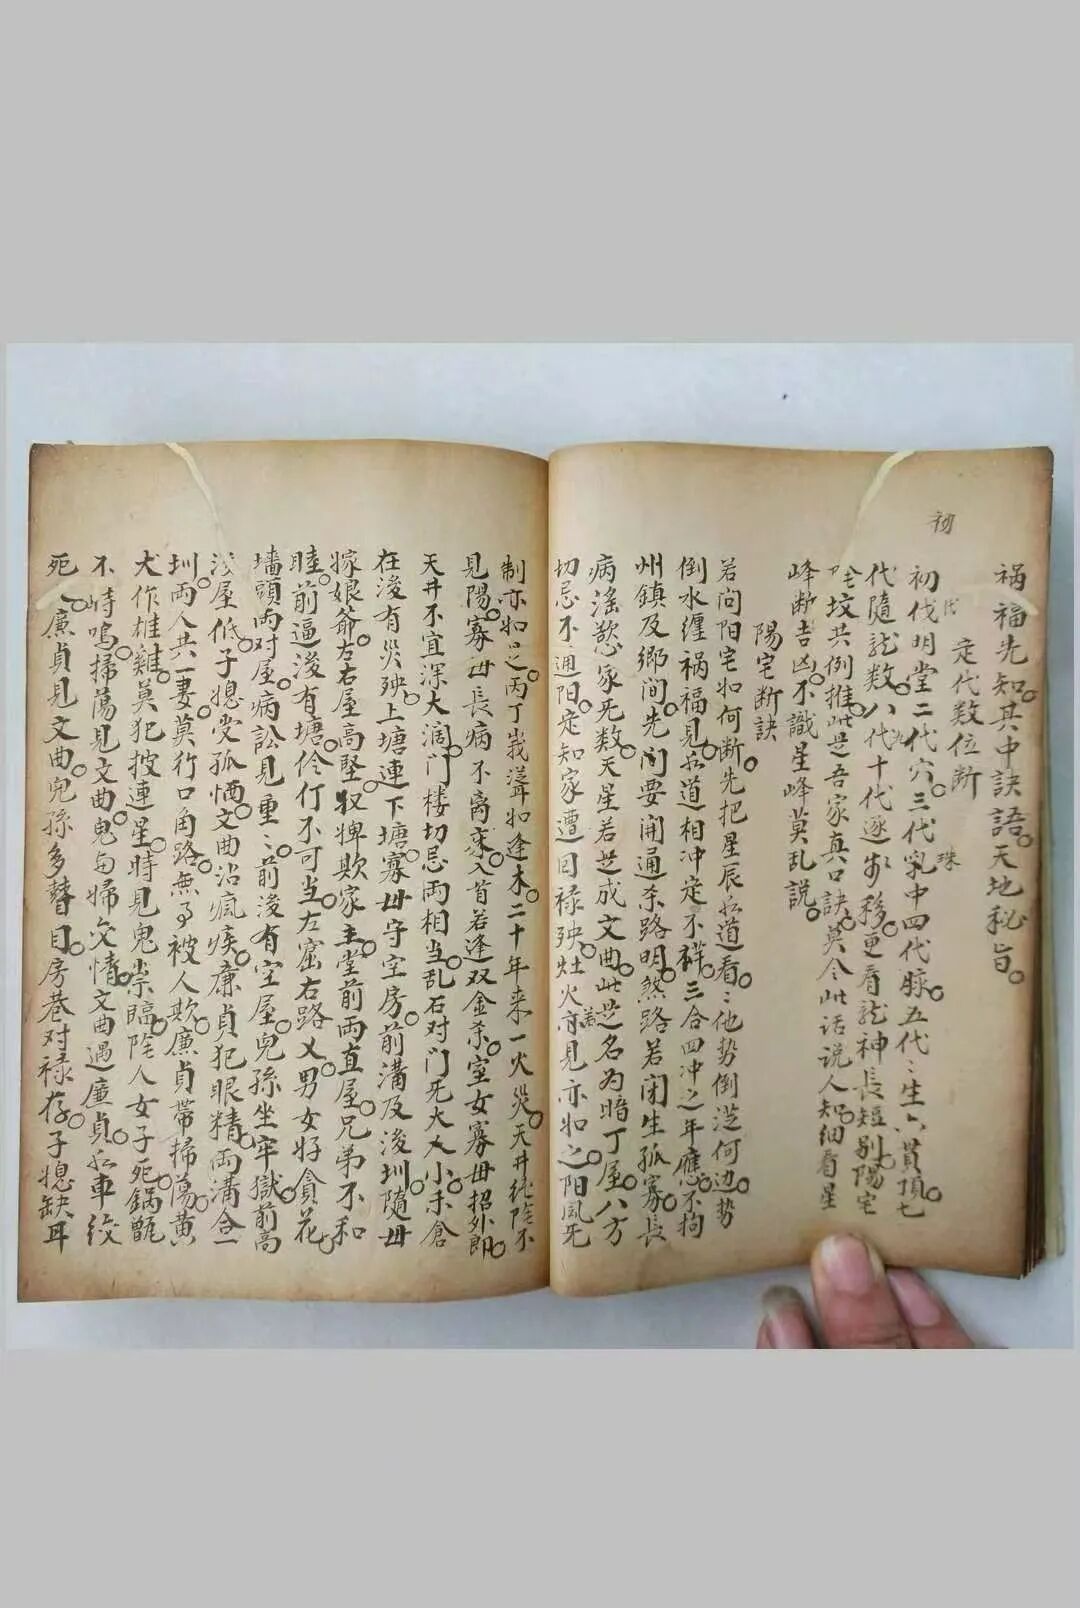 初
祸福先知。其中訣語。天地秘旨。
定代数位断
初代明堂二代穴。三代乳中四代脉。五代〻生六貫頂。七
代隨龙数。八代十代逐步移。更看龙神長短别。陽宅
陰坟共例推。此是吾家真口訣。莫令此话说人知。细看星
峰断吉凶。不識星峰莫乱説。
陽宅断訣
若问阳宅如何断。先把星辰依道看。〻他势倒從何边。势
倒水缠祸福見。依道相冲定不祥。三合四冲之年應。不拘
州鎮及鄉间。先问要開通杀路明。煞路若闭生孤寡。長
病滛慾家死数。天星若是成文曲。此是名为暗丁屋。八方
切忌不通阳。定知家遭回禄殃。灶火房見亦如之。阳風死
制亦如是。丙丁峩瀌如逢未。二十年来一火災。天井純陰不
見陽。寡母長病不離床。入首若逢双金杀。室女寡母招外郎。
天井不宜深大阔。门楼切忌両相当。乱石对门死大人。小未倉
在後有災殃。上塘連下塘。寡母守空房。前溝及後圳。隨母
嫁娘爺。左右屋高堅。奴婢欺家主。堂前両直屋。兄弟不和
睦。前逼後有塘。伶仃不可当。左窑右路叉。男女好貪花。
墻頭両对屋。病訟見重〻。前後有空屋。兒孫坐牢獄。前高
後屋低。子媳受孤恓。文曲沾瘋疾。廉貞犯眼精。両溝合一
圳。両人共一妻。莫行口角路。無事被人欺。廉貞帶掃蕩。黄
犬作雄雞。莫犯披連星。時見鬼祟臨。陰人女子死。鍋甑
不時鳴。掃蕩見文曲。鬼与婦交情。文曲遇廉貞。依車绞
死人。廉貞見文曲。兒孫多瞽目。房巷对禄存。子媳缺耳